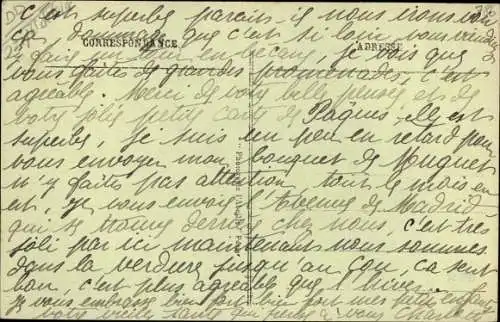 c'est superbe parfois il nous irons voir
ça dommage que c'est si loin vous viendriez
CORRESPONDANCE
ADRESSE
y faire un tour en bécane je vois que
vous faites de grandes promenades, c'est
agréable. Merci de votre belle pensée et de
votre jolie petite carte de Pâques, elle est
superbe, je suis un peu en retard pour
vous envoyer mon bouquet de Muguet
n'y faites pas attention, tout le mois en
est, je vous envoie l'avenue de Madrid
qui se trouve derrière chez nous, c'est très
joli par ici maintenant nous sommes
dans la verdure jusqu'au cou, ça sent
bon, c'est plus agréable que l'hiver.
Je vous embrasse bien fort bien fort mes petits enfants
votre vieille qui pense à vous